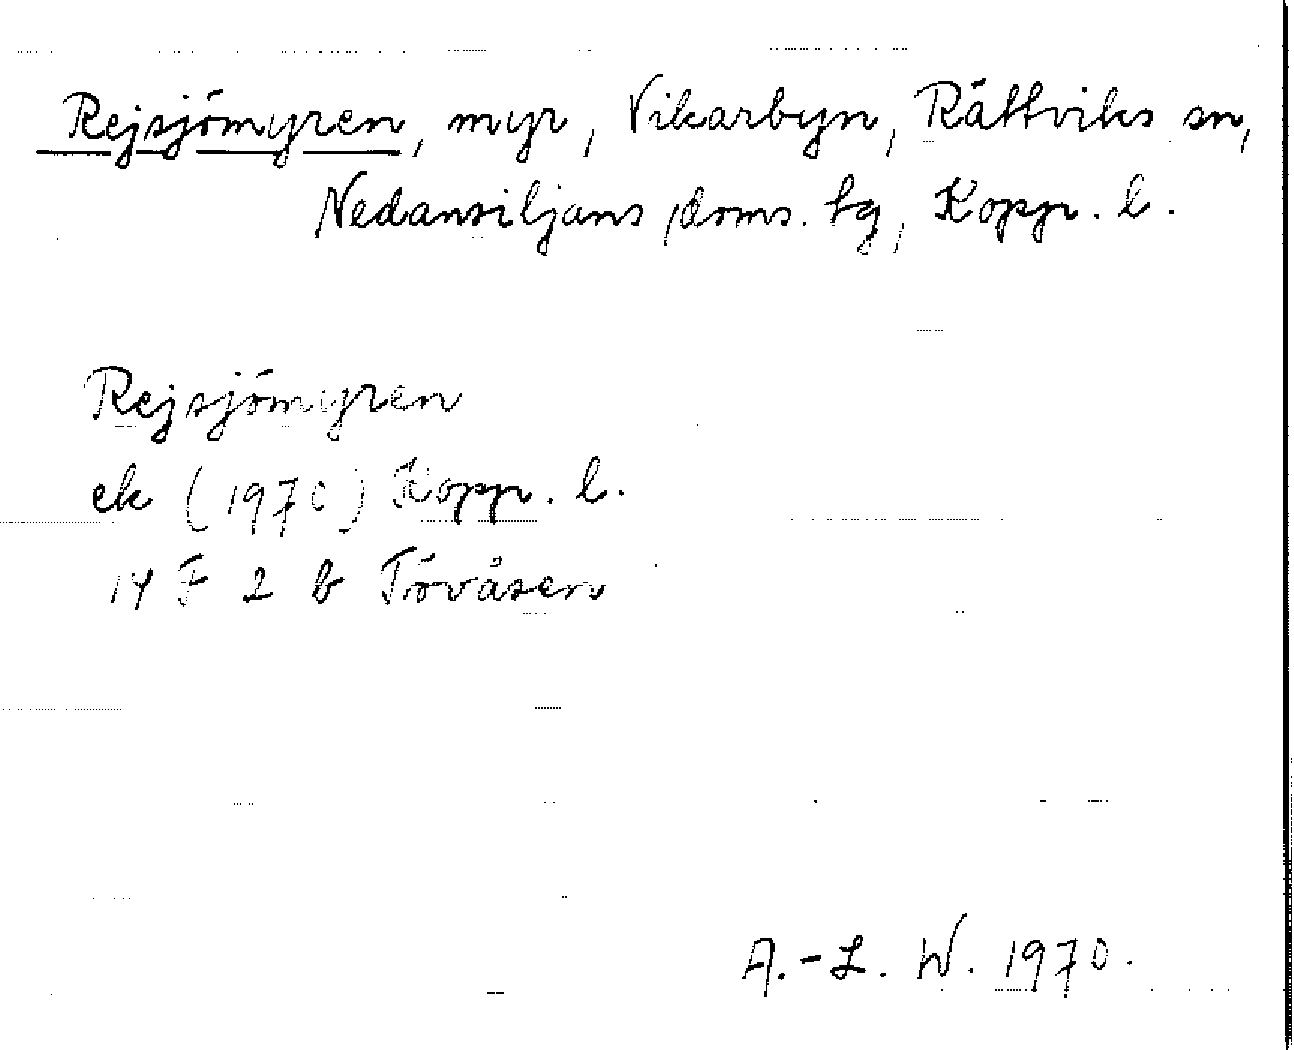 Rejsjömyren, myr, Vikarbyn, Rättviks sn,
Nedansiljans doms. tg, Kopp. l.
Rejsjömyren
ek (1970) Kopp. l.
14 F 2 b Tövåsen
A.-L. W. 1970.